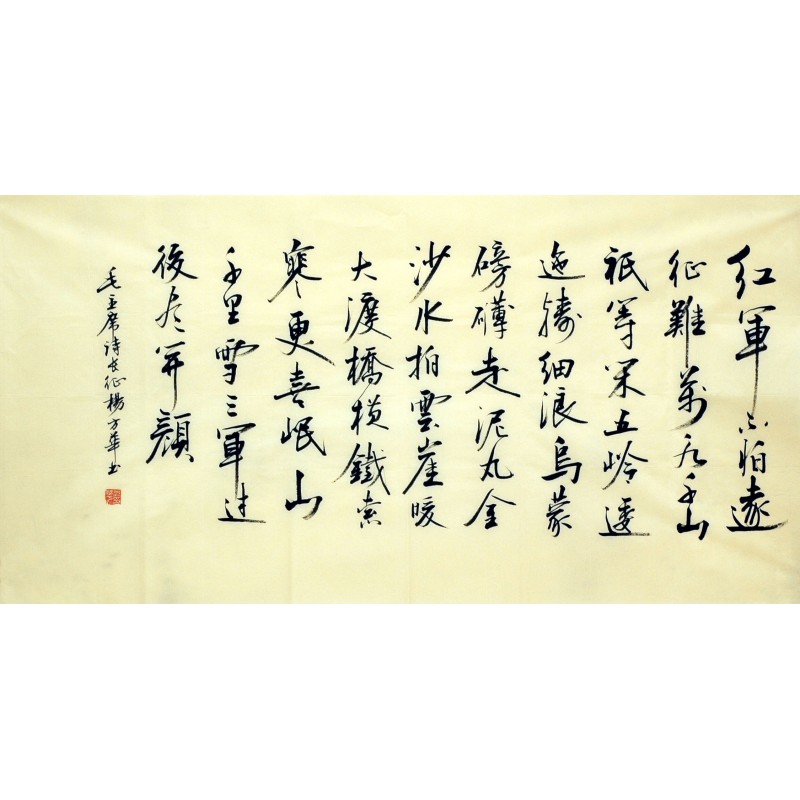 紅軍不怕遠
征難萬水千山
祇等閑五岭逶
迤騰細浪烏蒙
磅礴走泥丸金
沙水拍雲崖暖
大渡橋横鐵索
寒更喜岷山
千里雪三軍过
後尽開顔
毛主席詩长征楊方華书